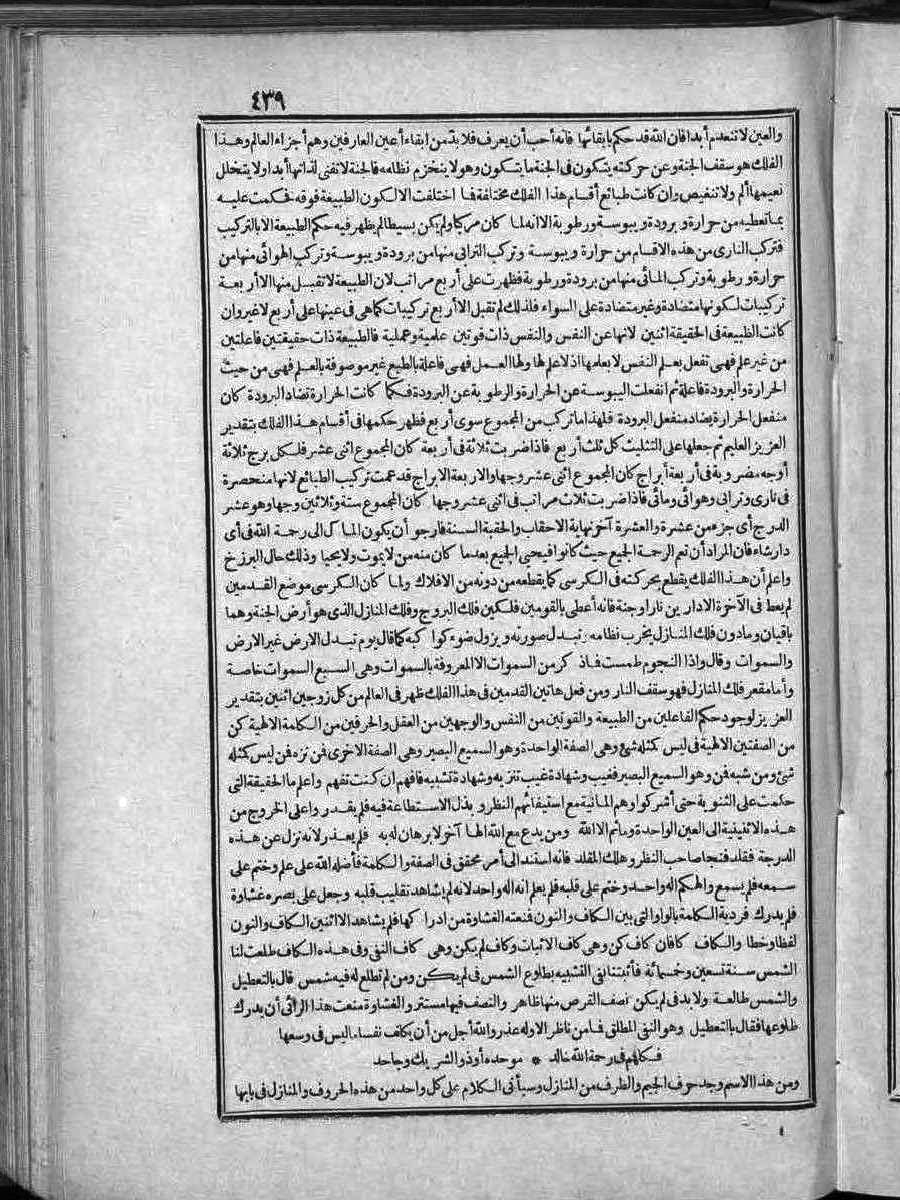 ٤٣٩
والعين لا تنعدم أبدا فان الله قد حكم بابقائها فانه أحب أن يعرف فلابد من ابقاء أعين العارفين وهم أجزاء العالم وهذا
الفلك هو سقف الجنة وعن حركته يتكون فى الجنة ما يتكون وهو لا ينخرم نظامه فالجنة لا تفنى لذاتها أبدا ولا يتخلل
نعيمها ألم ولا تنغيص وان كانت طبائع أقسام هذا الفلك مختلفة فما اختلفت الا لكون الطبيعة فوقه فحكمت عليه
بما تعطيه من حرارة وبرودة ويبوسة ورطوبة الا انه لما كان مركبا ولم يكن بسيطا لم يظهر فيه حكم الطبيعة الا بالتركيب
فتركب النارى من هذه الاقسام من حرارة ويبوسة وتركب الترابى منها من برودة ويبوسة وتركب الهوائى منها من
حرارة ورطوبة وتركب المائى منها من برودة ورطوبة فظهرت على أربع مراتب لان الطبيعة لا تقبل منها الا أربعة
تركيبات لكونها متضادة وغير متضادة على السواء فلذلك لم تقبل الا أربع تركيبات كما هى فى عينها على أربع لا غير وان
كانت الطبيعة فى الحقيقة اثنين لانها عن النفس والنفس ذات قوتين علمية وعملية فالطبيعة ذات حقيقتين فاعلتين
من غير علم فهى تفعل بعلم النفس لا بعلمها اذ لا علم لها ولها العمل فهى فاعلة بالطبع غير موصوفة بالعلم فهى من حيث
الحرارة والبرودة فاعلة ثم انفعلت اليبوسة عن الحرارة والرطوبة عن البرودة فكما كانت الحرارة تضاد البرودة كان
منفعل الحرارة يضاد منفعل البرودة فلهذا ما تركب من المجموع سوى أربع فظهر حكمها فى أقسام هذا الفلك بتقدير
العزيز العليم ثم جعلها على التثليث كل ثلث أربع فاذا ضربت ثلاثة فى أربعة كان المجموع اثنى عشر فلكل برج ثلاثة
أوجه مضروبة فى أربعة أبراج كان المجموع اثنى عشر وجها والاربعة الابراج قد عمت تركيب الطبائع لانها منحصرة
فى نارى وترابى وهوائى ومائى فاذا ضربت ثلاث مراتب فى اثنى عشر وجها كان المجموع ستة وثلاثين وجها وهو عشر
الدرج أى جزء من عشرة والعشرة آخر نهاية الاحقاب والحقبة السنة فارجو أن يكون المآل الى رحمة الله فى أى
دار شاء فان المراد أن تعم الرحمة الجميع حيث كانوا فيحيى الجميع بعدما كان منه من لا يموت ولا يحيا وذلك حال البرزخ
واعلم أن هذا الفلك يقطع بحركته فى الكرسى كما يقطعه من دونه من الافلاك ولما كان الكرسى موضع القدمين
لم يعط فى الآخرة الا دارين نارا وجنة فانه أعطى بالقدمين فلكين فلك البروج وفلك المنازل الذى هو أرض الجنة وهما
باقيان وما دون فلك المنازل يخرب نظامه وتبدل صورته ويزول ضوء كواكبه كما قال يوم تبدل الارض غير الارض
والسموات وقال واذا النجوم طمست فذكر من السموات الا المعروفة بالسموات وهى السبع السموات خاصة
وأما مقعر فلك المنازل فهو سقف النار ومن فعل هاتين القدمين فى هذا الفلك ظهر فى العالم من كل زوجين اثنين بتقدير
العزيز لوجود حكم الفاعلين من الطبيعة والقوتين من النفس والوجهين من العقل والحرفين من الكلمة الالهية كن
من الصفتين الالهية فى ليس كمثله شئ وهى الصفة الواحدة وهو السميع البصير وهى الصفة الاخرى فمن نزه فمن ليس كمثله
شئ ومن شبه فمن وهو السميع البصير فغيب وشهادة غيب تنزيه وشهادة تشبيه فافهم ان كنت تفهم واعلم ما الحقيقة التى
حكمت على الثنوية حتى أشركوا وهم المانية مع استيفائهم النظر وبذل الاستطاعة فيه فلم يقدروا على الخروج من
هذه الاثنينية الى العين الواحدة وما ثم الا الله ومن يدع مع الله الها آخر لا برهان له به فلم يعذر لانه نزل عن هذه
الدرجة فقلد فنجا صاحب النظر وهلك المقلد فانه استند الى أمر محقق فى الصفة والكلمة فأضله الله على علم وختم على
سمعه فلم يسمع والهكم اله واحد وختم على قلبه فلم يعلم انه اله واحد لانه لم يشاهد تقليب قلبه وجعل على بصره غشاوة
فلم يدرك فردية الكلمة بالواو التى بين الكاف والنون فمنعته الغشاوة من ادراكها فلم يشاهد الا اثنين الكاف والنون
لفظا وخطا والكاف كافان كاف كن وهى كاف الاثبات وكاف لم يكن وهى كاف النفى وفى هذه الكاف طلعت لنا
الشمس سنة تسعين وخسمائة فأثبتنا نفى التشبيه بطلوع الشمس فى لم يكن ومن لم تطلع له فيه شمس قال بالتعطيل
والشمس طالعة ولا بد فى لم يكن نصف القرص منها ظاهر والنصف فيها مستتر والغشاوة منعت هذا الرائى أن يدرك
طلوعها فقال بالتعطيل وهو النفى المطلق فما من ناظر الا وله عذر والله أجل من أن يكلف نفسا ما ليس فى وسعها
فكلهم فى رحمة الله خالد * موحده أو ذو الشريك وجاحد
ومن هذا الاسم وجد حرف الجيم والطرف من المنازل وسيأتى الكلام على كل واحد من هذه الحروف والمنازل فى بابها